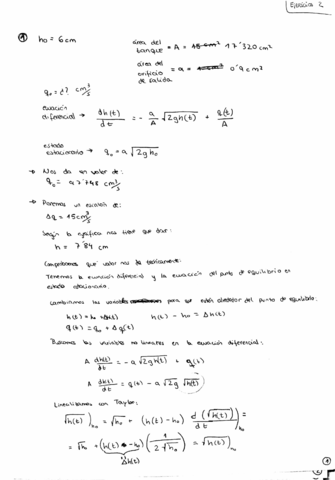 Ejercicio 2
① h₀ = 6 cm
área del tanque = A = 17'320 cm²
área del orificio de salida = a = 0'9 cm²
q₀ = ¿? cm³/s
ecuación diferencial → dh(t)/dt = - a/A √2gh(t) + q(t)/A
estado estacionario → q₀ = a √2gh₀
→ Nos da un valor de:
q₀ = 97'648 cm³/s
→ Ponemos un escalón de:
Δq = 15 cm³/s
Según la gráfica nos tiene que dar:
h = 7'84 cm
Comprobamos qué valor nos da teóricamente:
Tenemos la ecuación diferencial y la ecuación del punto de equilibrio en
estado estacionario.
Cambiamos las variables para que estén alrededor del punto de equilibrio:
h(t) = h₀ + Δh(t)      h(t) - h₀ = Δh(t)
q(t) = q₀ + Δq(t)
Buscamos las variables no lineales en la ecuación diferencial:
A dh(t)/dt = -a √2gh(t) + q(t)
A dh(t)/dt = q(t) - a √2g √h(t)
Linealizamos con Taylor:
√h(t))h₀ = √h₀ + (h(t) - h₀) d(√h(t))/dt )h₀ =
= √h₀ + (h(t) - h₀) (1/2√h₀) = √h(t))h₀
Δh(t)
①